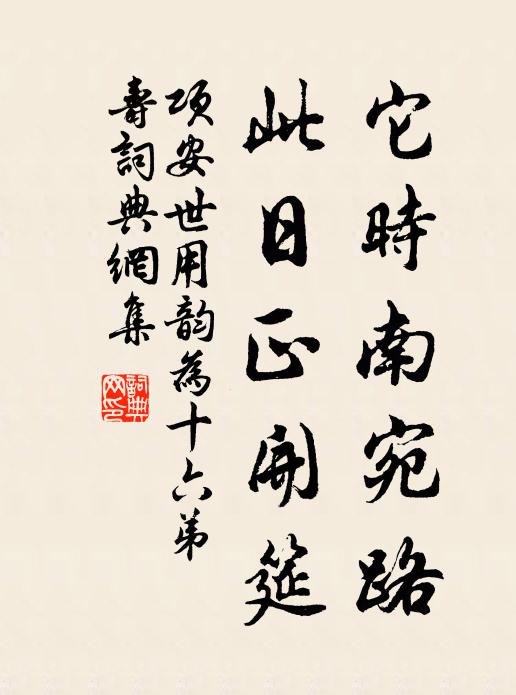 它時南宛路
此日正開筵
項安世用韵為十六弟
壽詞典網集
詞典網印